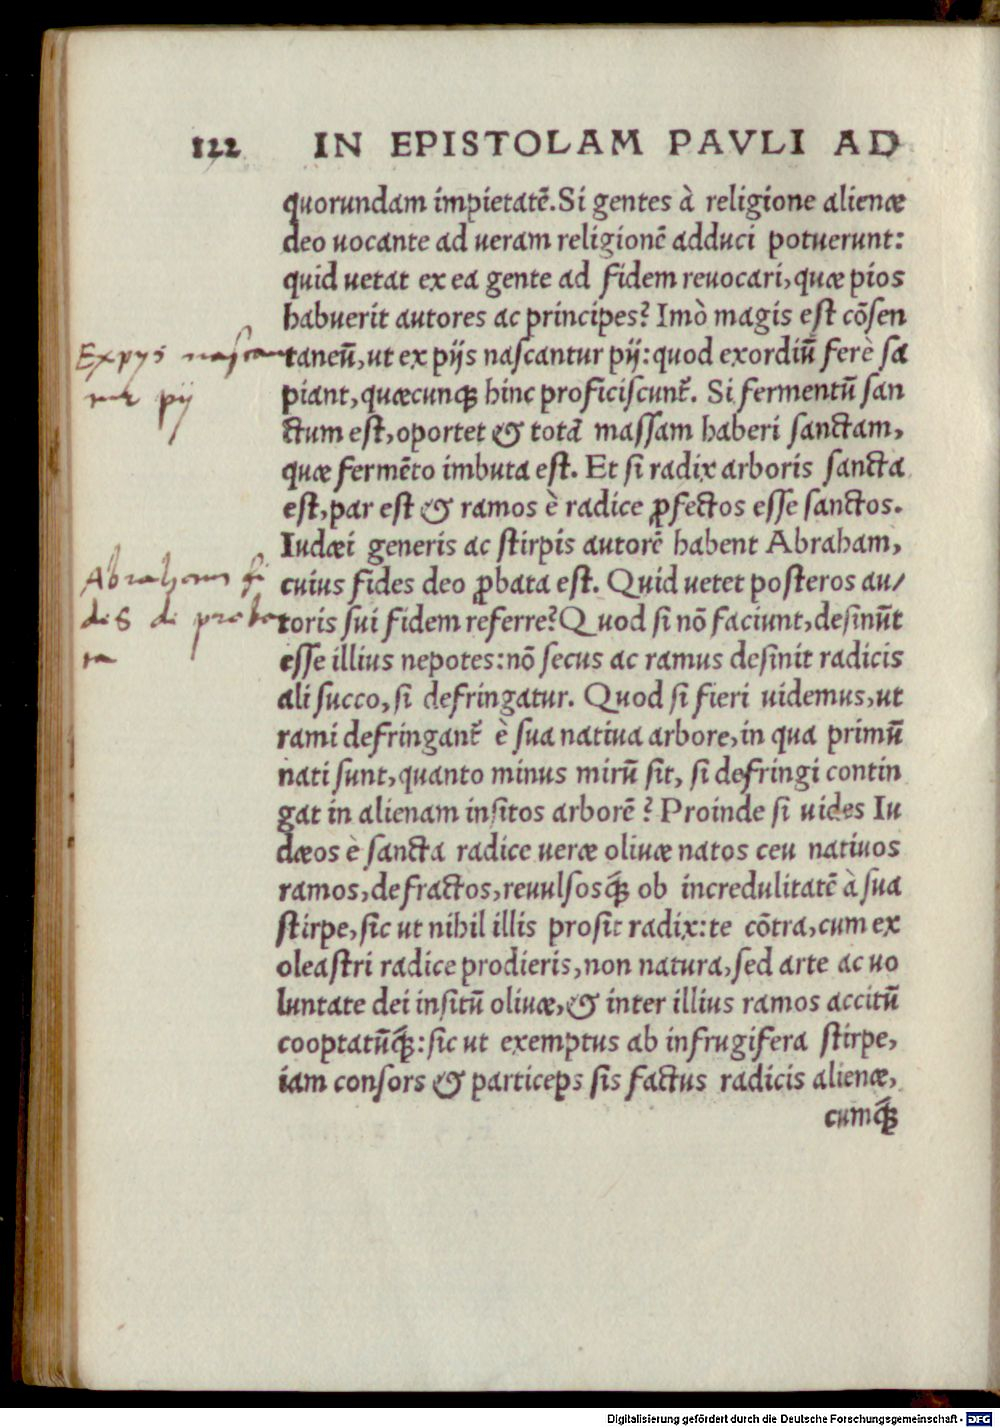 122 IN EPISTOLAM PAVLI AD
quorundam impietatē. Si gentes à religione alienæ
deo uocante ad ueram religionē adduci potuerunt:
quid uetat ex ea gente ad fidem reuocari, quæ pios
habuerit autores ac principes? Imò magis est cōsen
taneū, ut ex pijs nascantur pij: quod exordiū ferè sa
piant, quæcunq; hinc proficiscunt᷑. Si fermentū san
ctum est, oportet & totā massam haberi sanctam,
quæ fermēto imbuta est. Et si radix arboris sancta
est, par est & ramos è radice ꝓfectos esse sanctos.
Iudæi generis ac stirpis autorē habent Abraham,
cuius fides deo ꝓbata est. Quid uetet posteros au/
toris sui fidem referre? Quod si nō faciunt, desinūt
esse illius nepotes: nō secus ac ramus desinit radicis
ali succo, si defringatur. Quod si fieri uidemus, ut
rami defringant᷑ è sua natiua arbore, in qua primū
nati sunt, quanto minus mirū sit, si defringi contin
gat in alienam insitos arborē? Proinde si uides Iu
dæos è sancta radice ueræ oliuæ natos ceu natiuos
ramos, defractos, reuulsosq́; ob incredulitatē à sua
stirpe, sic ut nihil illis prosit radix: te cōtra, cum ex
oleastri radice prodieris, non natura, sed arte ac uo
luntate dei insitū oliuæ, & inter illius ramos accitū
cooptatūq́;: sic ut exemptus ab infrugifera stirpe,
iam consors & particeps sis factus radicis alienæ,
cumq́;
Ex pijs nascan
tur pij
Abraham fi
des di proba
ta
Digitalisierung gefördert durch die Deutsche Forschungsgemeinschaft - DFG